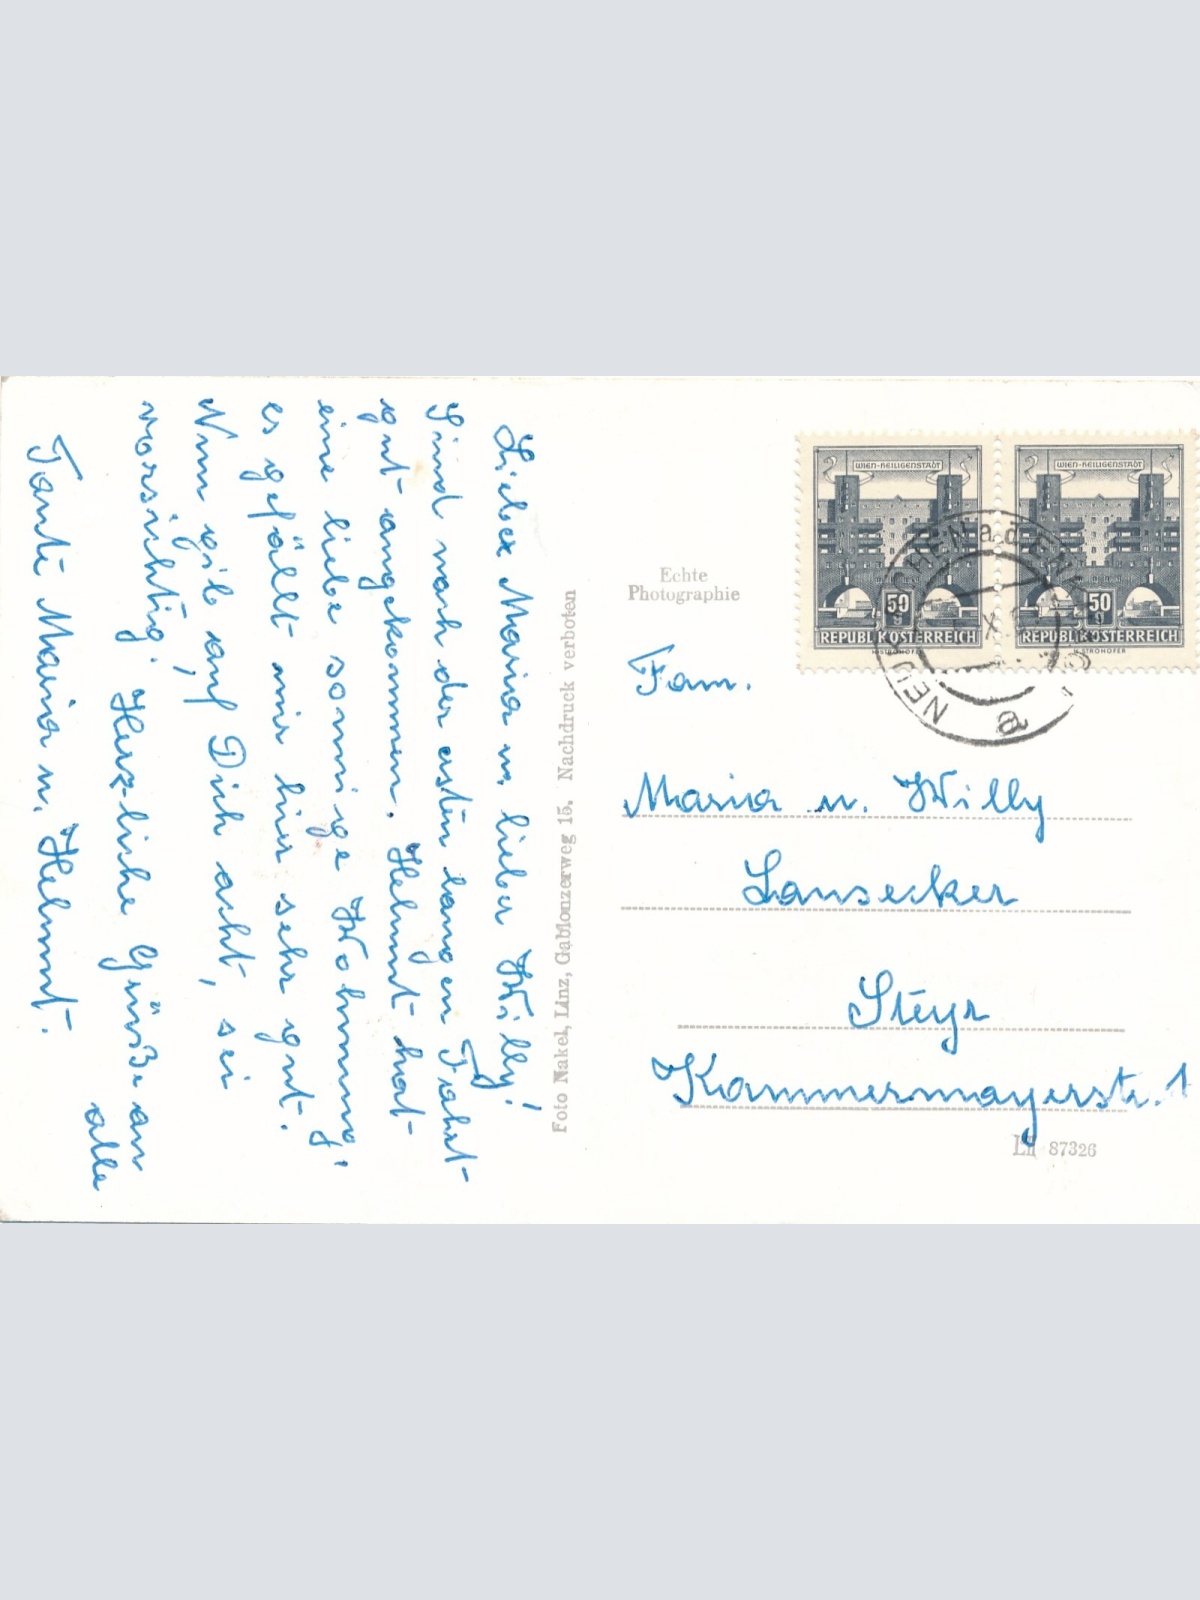 Liebe Maria u. lieber Willy!
Sind nach der ersten langen Fahrt
gut angekommen. Helmut hat
eine liebe sonnige Wohnung,
es gefällt mir hier sehr gut.
Nun gib auf Dich acht, sei
vorsichtig.
Herzliche Grüße an
alle
Tante Maria u. Helmut.
Foto Nakel, Linz, Gablonzerweg 15. Nachdruck verboten
Echte
Photographie
WIEN-HEILIGENSTADT
50 g
REPUBLIK ÖSTERREICH
H. STROHOFER
WIEN-HEILIGENSTADT
50 g
REPUBLIK ÖSTERREICH
H. STROHOFER
a
Fam.
Maria u. Willy
Lansecker
Steyr
Kammermayerstr. 1
87326